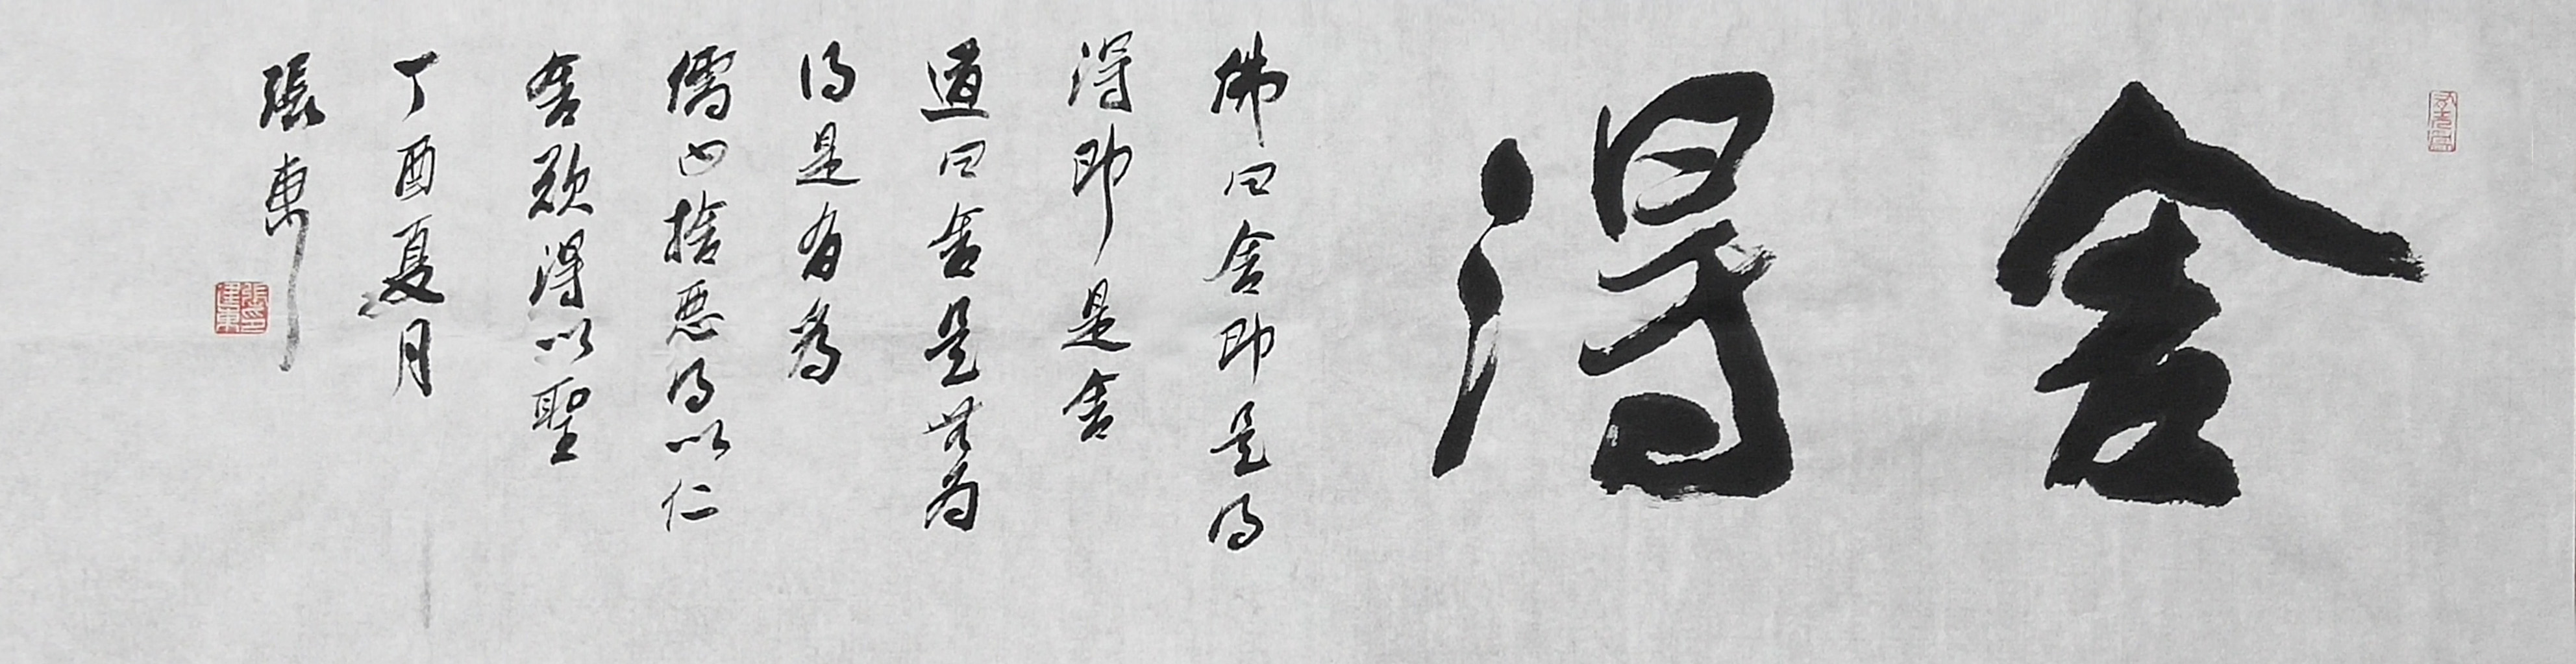 舍得
佛曰舍即是得
得即是舍
道曰舍是无为
得是有為
儒曰捨惡得以仁
舍欲得以聖
丁酉夏月
張東
張建東印